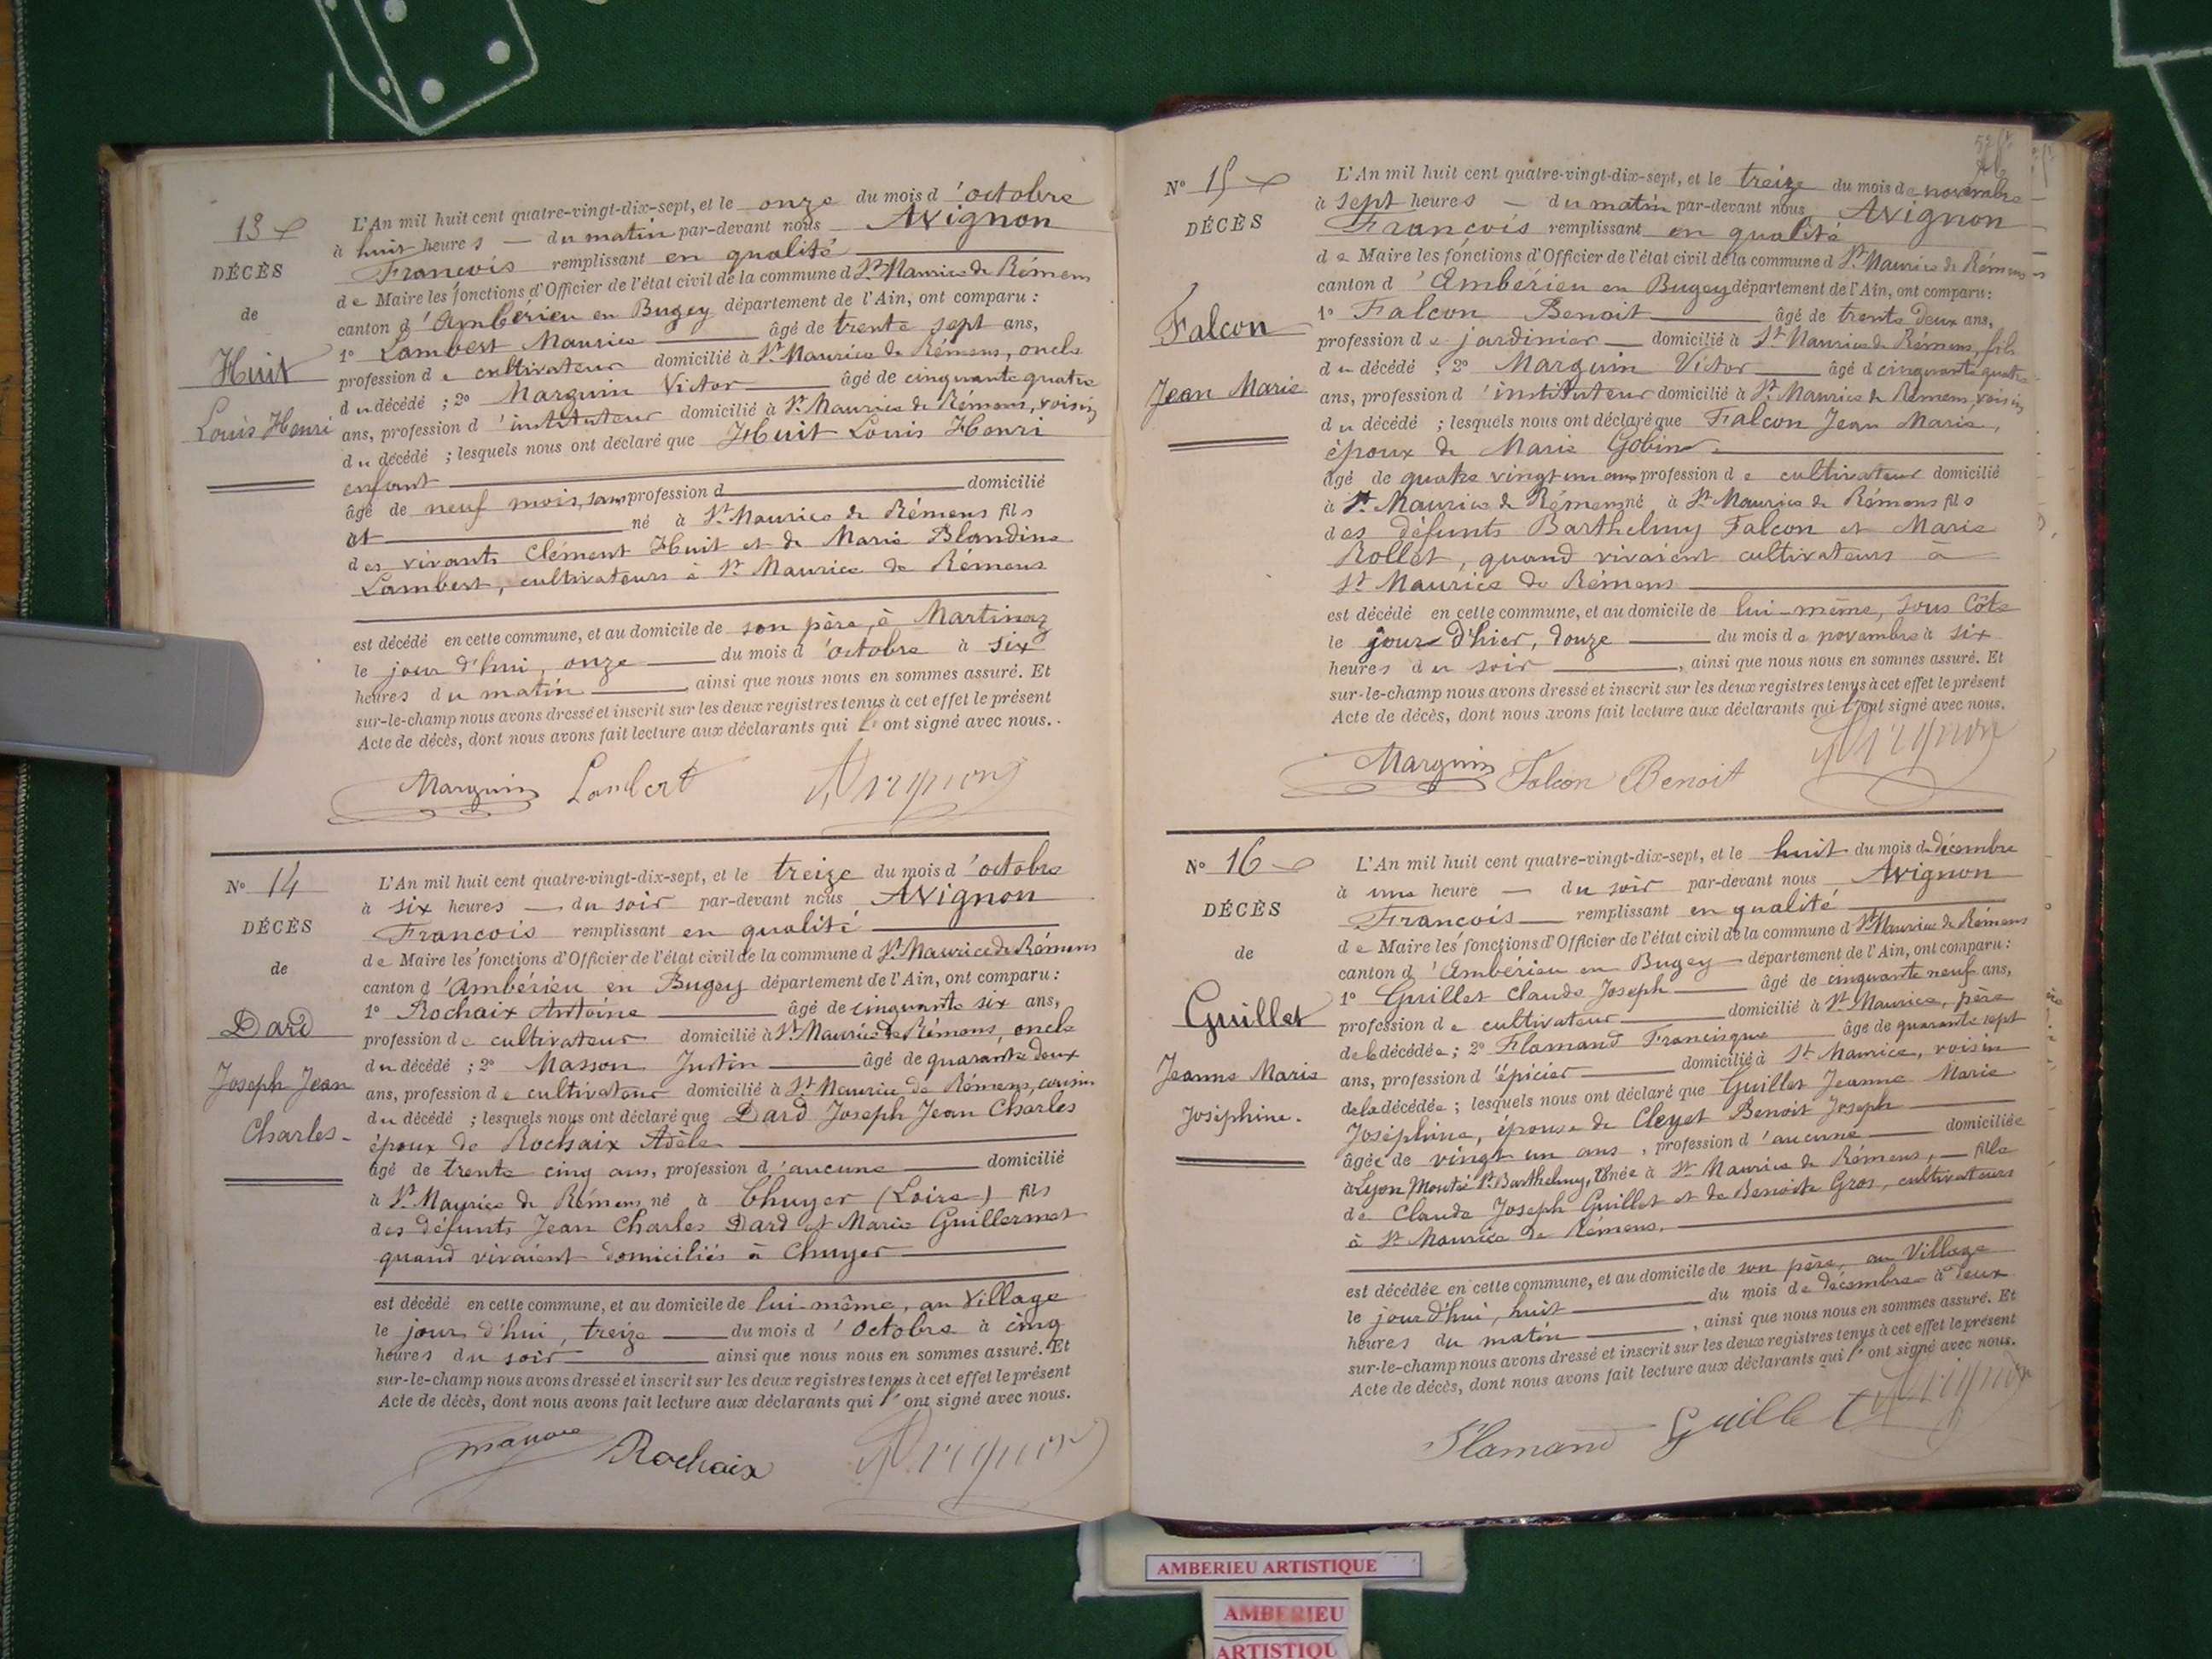 13
DÉCÈS
de
Huit
Louis Henri
L'An mil huit cent quatre-vingt-dix-sept, et le onze du mois d'octobre
à huit heures — du matin par-devant nous Avignon
François remplissant en qualité
de Maire les fonctions d'Officier de l'état civil de la commune d St Maurice de Rémens
canton d'Ambérieu en Bugey département de l'Ain, ont comparu :
1° Lambert Maurice âgé de trente sept ans,
profession de cultivateur domicilié à St Maurice de Rémens, oncle
du décédé ; 2° Marguin Victor âgé de cinquante quatre
ans, profession d'instituteur domicilié à St Maurice de Rémens, voisin
du décédé ; lesquels nous ont déclaré que Huit Louis Henri
enfant
âgé de neuf mois, sans profession d domicilié
et né à St Maurice de Rémens fils
des vivants Clément Huit et de Marie Blandine
Lambert, cultivateurs à St Maurice de Rémens
est décédé en cette commune, et au domicile de son père, à Martinaz
le jour d'hui, onze du mois d'octobre à six
heures du matin, ainsi que nous nous en sommes assuré. Et
sur-le-champ nous avons dressé et inscrit sur les deux registres tenus à cet effet le présent
Acte de décès, dont nous avons fait lecture aux déclarants qui l'ont signé avec nous.
Marguin Lambert Avignon
N° 14
DÉCÈS
de
Dard
Joseph Jean
Charles
L'An mil huit cent quatre-vingt-dix-sept, et le treize du mois d'octobre
à six heures — du soir par-devant nous Avignon
François remplissant en qualité
de Maire les fonctions d'Officier de l'état civil de la commune d St Maurice de Rémens
canton d'Ambérieu en Bugey département de l'Ain, ont comparu :
1° Rochaix Antoine âgé de cinquante six ans,
profession de cultivateur domicilié à St Maurice de Rémens, oncle
du décédé ; 2° Masson Justin âgé de quarante deux
ans, profession de cultivateur domicilié à St Maurice de Rémens, cousin
du décédé ; lesquels nous ont déclaré que Dard Joseph Jean Charles
époux de Rochaix Adèle
âgé de trente cinq ans, profession d'aucune domicilié
à St Maurice de Rémens né à Chuyer (Loire) fils
des défunts Jean Charles Dard et Marie Guillermet
quand vivaient domiciliés à Chuyer
est décédé en cette commune, et au domicile de lui-même, au Village
le jour d'hui, treize du mois d'octobre à cinq
heures du soir ainsi que nous nous en sommes assuré. Et
sur-le-champ nous avons dressé et inscrit sur les deux registres tenus à cet effet le présent
Acte de décès, dont nous avons fait lecture aux déclarants qui l'ont signé avec nous.
Rochaix Avignon
N° 15
DÉCÈS
Falcon
Jean Marie
L'An mil huit cent quatre-vingt-dix-sept, et le treize du mois de novembre
à sept heures — du matin par-devant nous Avignon
François remplissant en qualité
de Maire les fonctions d'Officier de l'état civil de la commune d St Maurice de Rémens
canton d'Ambérieu en Bugey département de l'Ain, ont comparu :
1° Falcon Benoit âgé de trente deux ans,
profession de jardinier domicilié à St Maurice de Rémens, fils
du décédé ; 2° Marguin Victor âgé d cinquante quatre
ans, profession d'instituteur domicilié à St Maurice de Rémens, voisin
du décédé ; lesquels nous ont déclaré que Falcon Jean Marie,
époux de Marie Gobin
âgé de quatre vingt un ans profession de cultivateur domicilié
à St Maurice de Rémens né à St Maurice de Rémens fils
des défunts Barthelmy Falcon et Marie
Rollet, quand vivaient cultivateurs à
St Maurice de Rémens
est décédé en cette commune, et au domicile de lui-même, sous Côte
le jour d'hier, douze du mois de novembre à six
heures du soir, ainsi que nous nous en sommes assuré. Et
sur-le-champ nous avons dressé et inscrit sur les deux registres tenus à cet effet le présent
Acte de décès, dont nous avons fait lecture aux déclarants qui l'ont signé avec nous.
Marguin Falcon Benoit Avignon
N° 16
DÉCÈS
de
Guillet
Jeanne Marie
Joséphine.
L'An mil huit cent quatre-vingt-dix-sept, et le huit du mois de décembre
à une heure — du soir par-devant nous Avignon
François remplissant en qualité
de Maire les fonctions d'Officier de l'état civil de la commune d St Maurice de Rémens
canton d'Ambérieu en Bugey département de l'Ain, ont comparu :
1° Guillet Claude Joseph âgé de cinquante neuf ans,
profession de cultivateur domicilié à St Maurice, père
de la décédée ; 2° Flamand Francisque âgé de quarante sept
ans, profession d'épicier domicilié à St Maurice, voisin
de la décédée ; lesquels nous ont déclaré que Guillet Jeanne Marie
Joséphine, épouse de Cleyet Benoit Joseph
âgée de vingt un ans, profession d'aucune domiciliée
à Lyon Montée St Barthelmy, née à St Maurice de Rémens, fille
de Claude Joseph Guillet et de Benoite Gros, cultivateurs
à St Maurice de Rémens.
est décédée en cette commune, et au domicile de son père, au Village
le jour d'hui, huit du mois de décembre à deux
heures du matin, ainsi que nous nous en sommes assuré. Et
sur-le-champ nous avons dressé et inscrit sur les deux registres tenus à cet effet le présent
Acte de décès, dont nous avons fait lecture aux déclarants qui l'ont signé avec nous.
Flamand Guillet Avignon
AMBERIEU ARTISTIQUE
AMBERIEU
ARTISTIQU